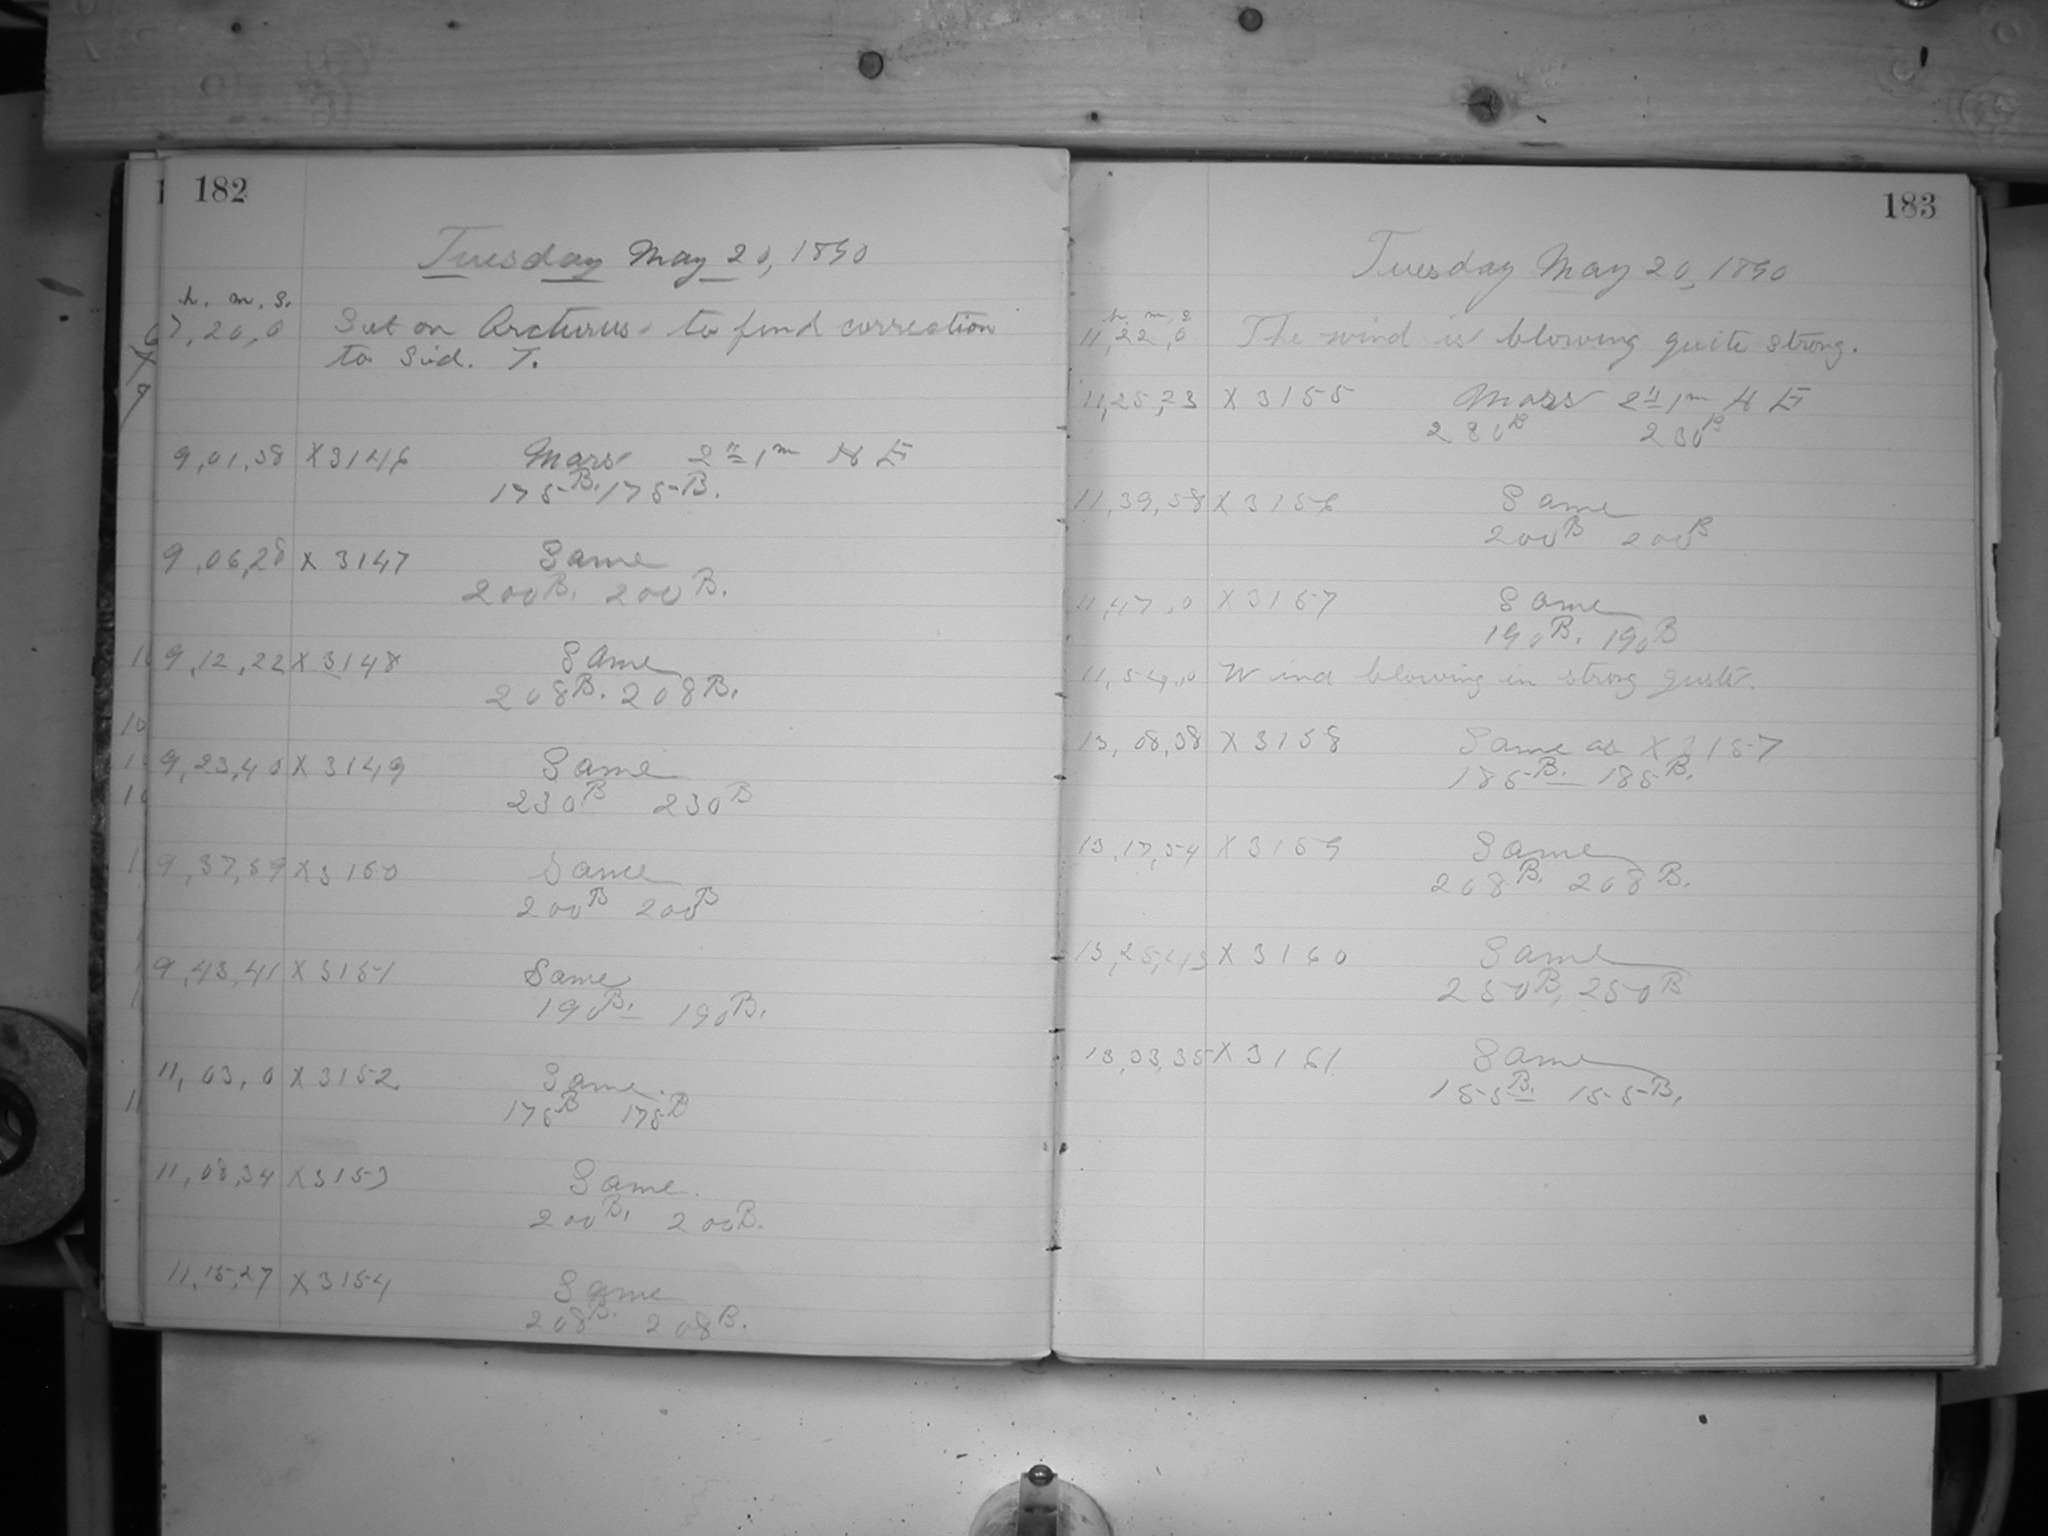 182
Tuesday May 20, 1890
h. m. s.
7,20,0 Set on Arcturus to find correction
to Sid. T.
9,01,38 X3146 Mars 2" 1m
175B. 175B.
9,06,28 X 3147 Same
200B. 200B.
9,12,22 X 3148 Same
208B. 208B.
9,23,40 X 3149 Same
230B 230B
9,37,59 X 3150 Same
200B 200B
9,43,41 X 3151 Same
190B. 190B.
11,03,0 X 3152 Same.
175B 175B
11,08,34 X 3153 Same.
200B. 200B.
11,15,27 X 3154 Same
208B. 208B.
183
Tuesday May 20, 1890
h. m. s
11,22,0 The wind is blowing quite strong.
11,25,23 X 3155 Mars 2" 1m
230B 230B
11,39,58 X 3156 Same
200B 200B
11,47,0 X 3157 Same
190B. 190B
11,54,0 Wind blowing in strong gusts.
13,08,38 X 3158 Same as X 3157
185B. 185B.
13,17,54 X 3159 Same
208B. 208B.
13,25,43 X 3160 Same
250B. 250B
13,33,35 X 3161 Same
155B. 155B.